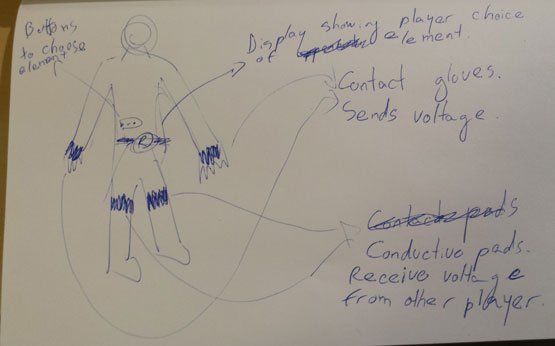 Buttons
to choose
element
Display showing player choice
of element.
Contact gloves.
Sends voltage.
R
Contacts pads
Conductive pads.
Receive voltage
from other player.